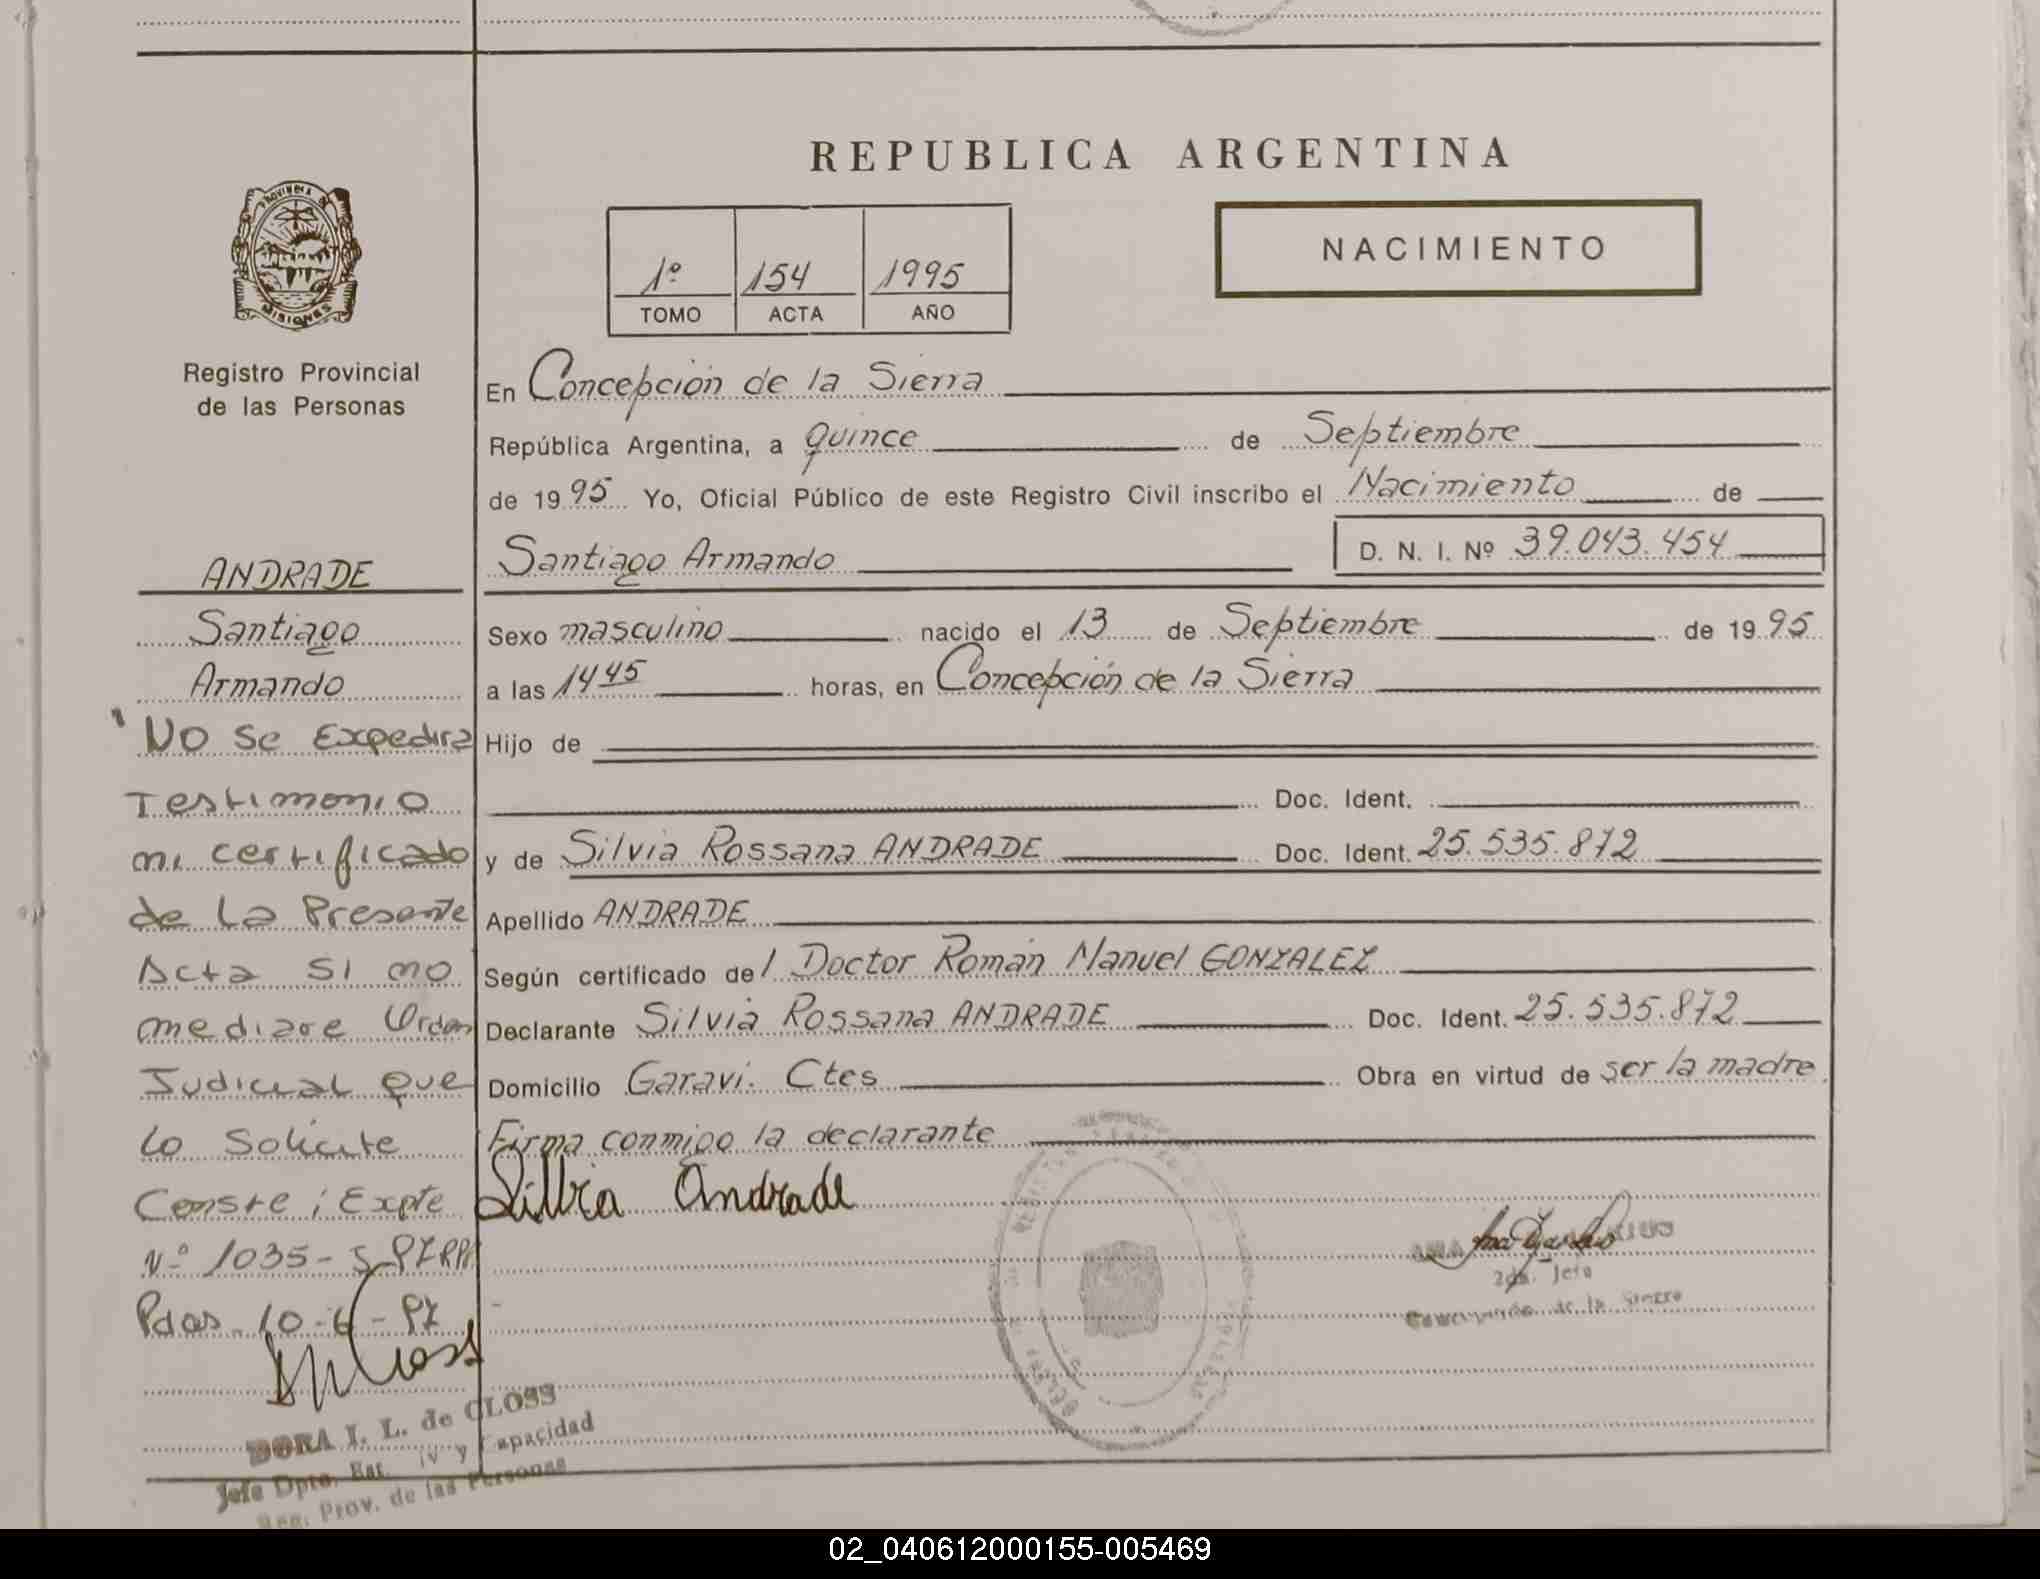 REPUBLICA ARGENTINA
PROVINCIA DE
MISIONES
Registro Provincial
de las Personas
1º 154 1995
TOMO ACTA AÑO
NACIMIENTO
En Concepción de la Sierra
República Argentina, a quince de Septiembre
de 1995 Yo, Oficial Público de este Registro Civil inscribo el Nacimiento de
Santiago Armando D. N. I. Nº 39.043.454
Sexo masculino nacido el 13 de Septiembre de 1995
a las 14 45 horas, en Concepción de la Sierra
Hijo de
Doc. Ident.
y de Silvia Rossana ANDRADE Doc. Ident. 25.535.872
Apellido ANDRADE
Según certificado del Doctor Román Manuel GONZALEZ
Declarante Silvia Rossana ANDRADE Doc. Ident. 25.535.872
Domicilio Garavi. Ctes Obra en virtud de ser la madre
Firma conmigo la declarante
Silvia Andrade
2da. Jefa
Concepción de la Sierra
ANDRADE
Santiago
Armando
No se Expedira
Testimonio
ni certificado
de La Presente
Acta si no
mediare Orden
Judicial que
lo Solicite
Conste; Expte
Nº 1035-
Pdas. 10-6-97
DORA I. L. de CLOSS
Jefe Dpto. Est. iv y Capacidad
Reg. Prov. de las Personas
02_040612000155-005469